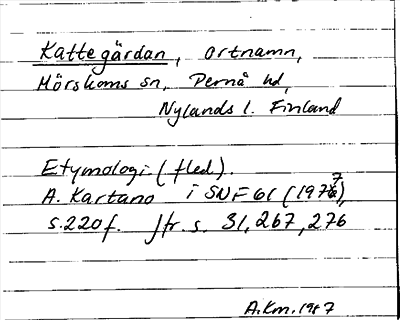 Kattegårdan, ortnamn,
Mörskoms sn, Pernå hd,
Nylands l. Finland
Etymologi. (fled).
A. Kartano i SNF 61 (1977),
s. 220 f. Jfr. s. 31, 267, 276
A.Km. 1987